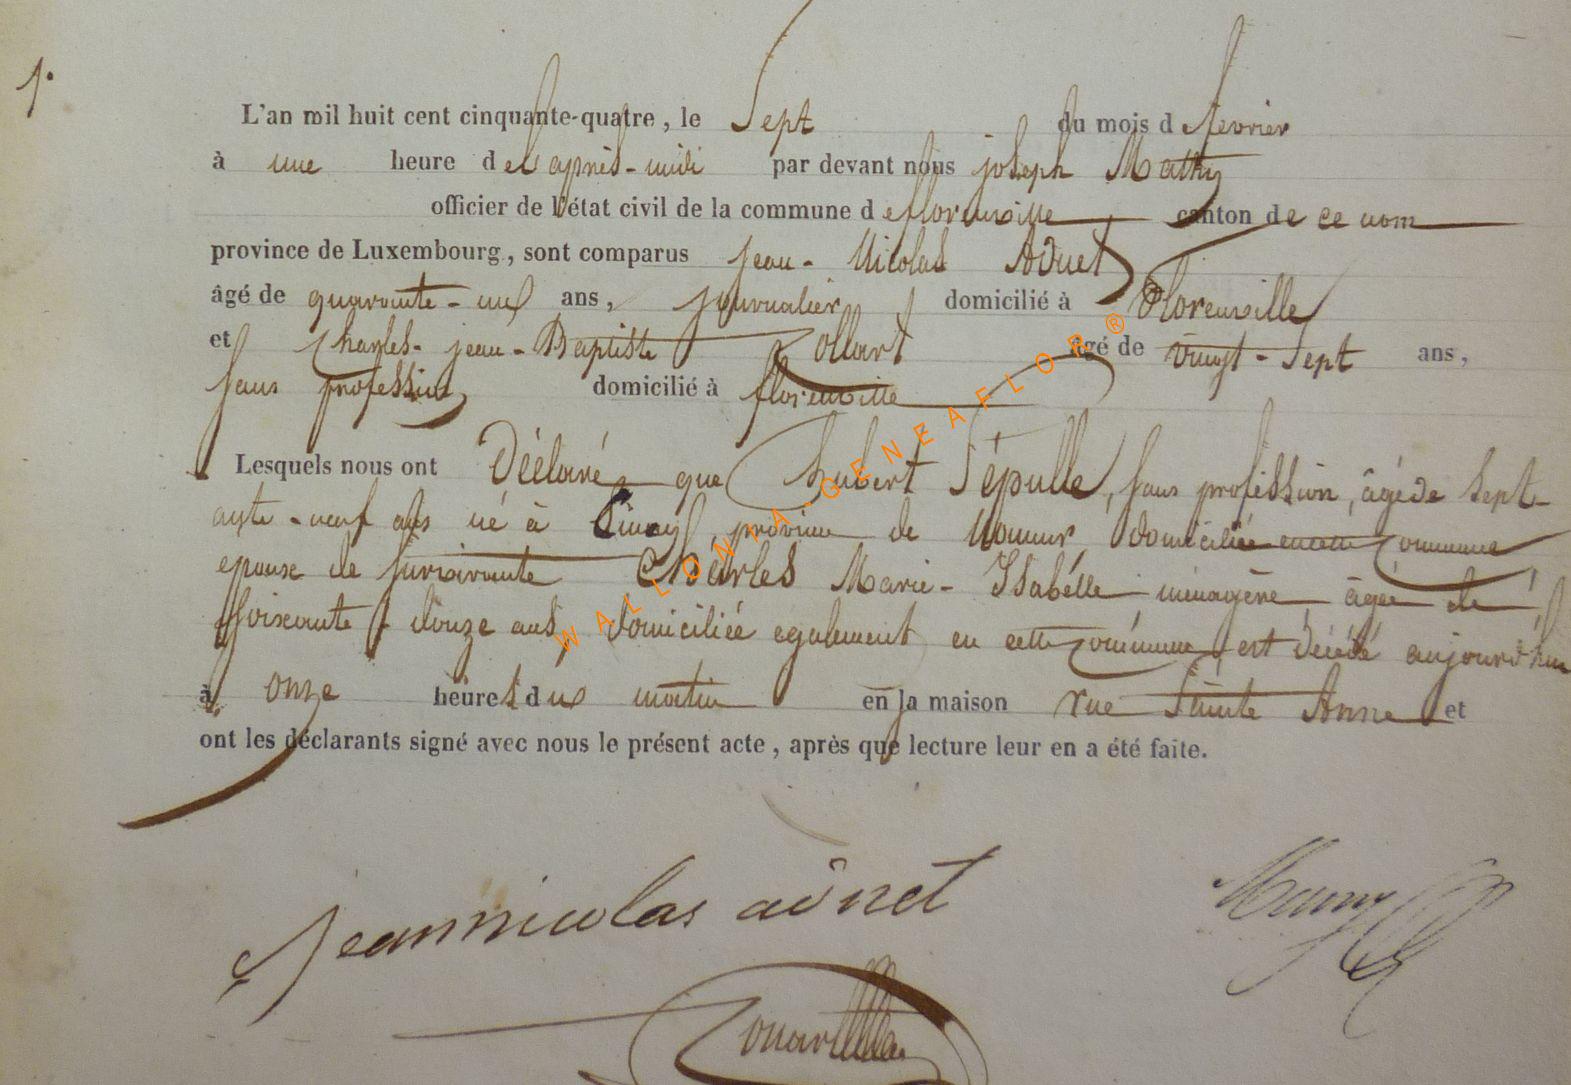 1.
L'an mil huit cent cinquante-quatre, le Sept du mois de fevrier
à une heure de l'après-midi par devant nous joseph Mathy
officier de l'état civil de la commune de florenville canton de ce nom
province de Luxembourg, sont comparus jean-Nicolas Aduet
âgé de quarante-un ans, journalier domicilié à Florenville
et Charles-jean-Baptiste Collart âgé de vingt-Sept ans,
sans profession domicilié à florenville
Lesquels nous ont Déclaré que hubert Sépulle, sans profession, âgé de Sept-
ante-neuf ans né à province de Namur domicilié en cette commune
epoux de survivante Charles Marie-Isabelle ménagère âgée de
soixante-douze ans, domiciliée egalement en cette commune, est décédé aujourd'hui
à onze heures du matin en la maison rue Sainte Anne et
ont les déclarants signé avec nous le présent acte, après que lecture leur en a été faite.
jean nicolas adnet
WALLONIA-GENEAFLOR®